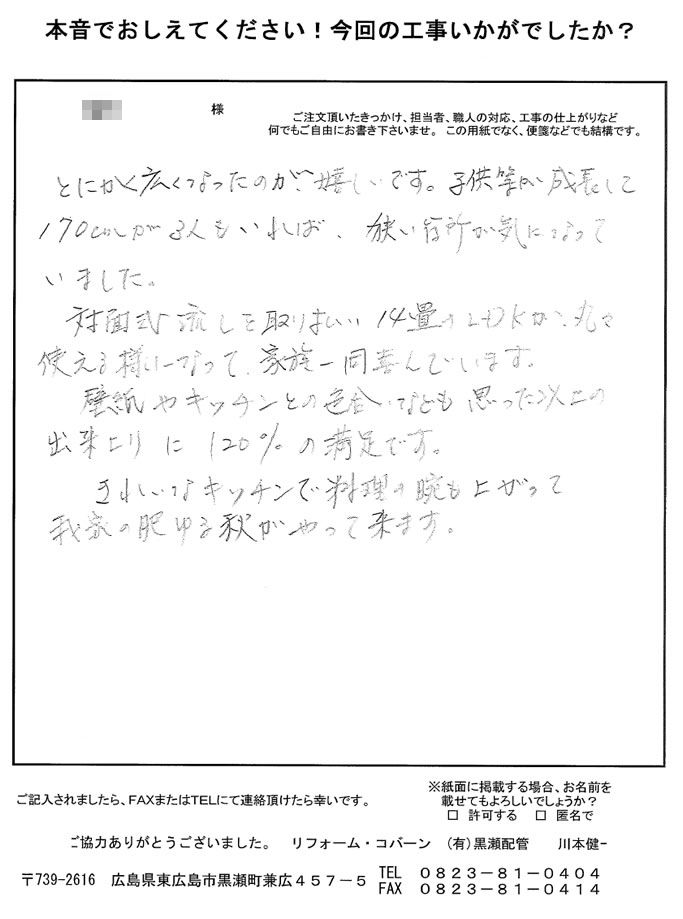 本音でおしえてください！今回の工事いかがでしたか？
様
ご注文頂いたきっかけ、担当者、職人の対応、工事の仕上がりなど
何でもご自由にお書き下さいませ。この用紙でなく、便箋などでも結構です。
とにかく広くなったのが、嬉しいです。子供等が成長して
170cmが3人もいれば、狭い台所が気になって
いました。
対面式流しを取りはらい14畳のLDKが、丸々
使える様になって、家族一同喜んでいます。
壁紙やキッチンとの色合いなども思った以上の
出来上りに120%の満足です。
きれいなキッチンで料理の腕も上がって
我家の肥ゆる秋がやって来ます。
ご記入されましたら、FAXまたはTELにて連絡頂けたら幸いです。
※紙面に掲載する場合、お名前を
載せてもよろしいでしょうか？
□ 許可する □ 匿名で
ご協力ありがとうございました。 リフォーム・コバーン (有)黒瀬配管 川本健一
〒739-2616 広島県東広島市黒瀬町兼広４５７－５
TEL ０８２３－８１－０４０４
FAX ０８２３－８１－０４１４